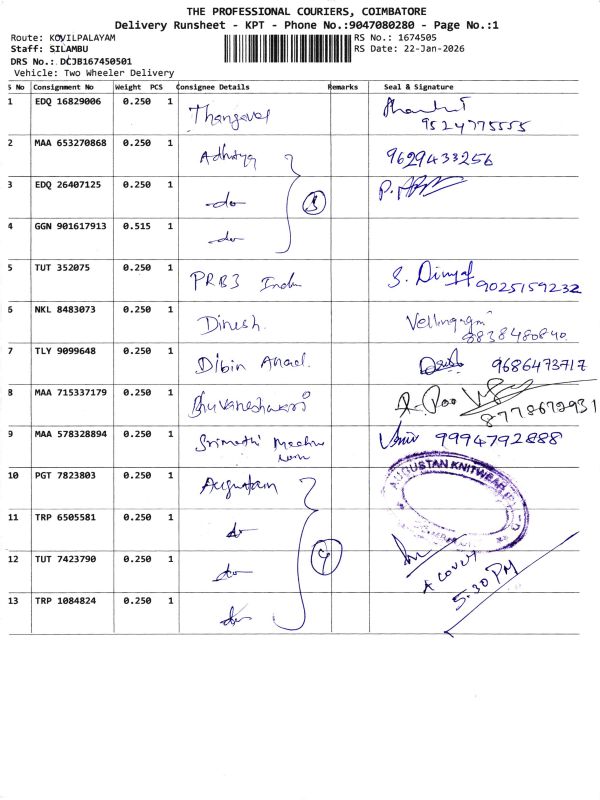 THE PROFESSIONAL COURIERS, COIMBATORE
Delivery Runsheet - KPT - Phone No.:9047080280 - Page No.:1
Route: KOVILPALAYAM
RS No.: 1674505
Staff: SILAMBU
RS Date: 22-Jan-2026
DRS No.: DCJB167450501
Vehicle: Two Wheeler Delivery
S No Consignment No Weight PCS Consignee Details Remarks Seal & Signature
1 EDQ 16829006 0.250 1 Thangavel
9524775555
2 MAA 653270868 0.250 1 Adhitya 9629433256
3 EDQ 26407125 0.250 1 -do- 3
4 GGN 901617913 0.515 1 -do-
5 TUT 352075 0.250 1 PRB3 S. 9025159232
6 NKL 8483073 0.250 1 Dinesh.
9838480840
7 TLY 9099648 0.250 1 Dibin 9686473717
8 MAA 715337179 0.250 1 Bhuvaneshwari
8778672931
9 MAA 578328894 0.250 1 Srimathi 9994792888
10 PGT 7823803 0.250 1 Augustan AUGUSTAN KNITWEAR
11 TRP 6505581 0.250 1 do
12 TUT 7423790 0.250 1 do 4
4 cover
5.30 PM
13 TRP 1084824 0.250 1 do